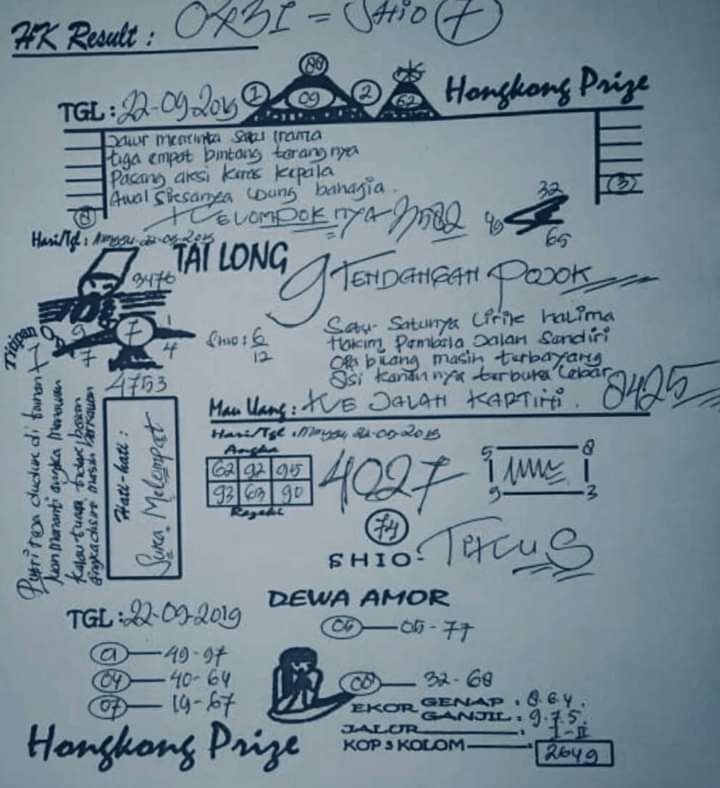 HK Result : OXBI = SHIO 7
TGL : 22-09-2019 1 00 09 2 62 Hongkong Prize
Jawr meminta satu irama
tiga empat bintang terang nya
Pasang aksi keras kepala
Awal siksanya ujung bahagia.
8
3
KELOMPOK NYA
49 32
65
Hari/Tgl : Minggu 22-09-2019
TAI LONG
9 TENDANGAN POJOK
3476
Titipan
9 7 1
7 4
4753
Shio : 6
12
Satu-satunya lirik halima
Hakim Pembela Jalan Sendiri
masih terbayang
Sisi kanan nya terbuka lebar
Mau Uang : KE JALAN KARTINI. 8425
Hari/Tgl : Minggu 22-09-2019
Angka
62 92 95
93 63 90
Rezeki
4027
5 8
9 3
Putri raja duduk di taman
angka
Hati-hati :
Suka Melompat
74
SHIO - TIKUS
DEWA AMOR
TGL : 22-09-2019
05 — 05-77
01 — 49-97
04 — 40-64
07 — 19-67
08 — 32-68
EKOR GENAP : 8.6.4.
GANJIL : 9.7.5.
JALUR : I-II
KOP 3 KOLOM — 2649
Hongkong Prize